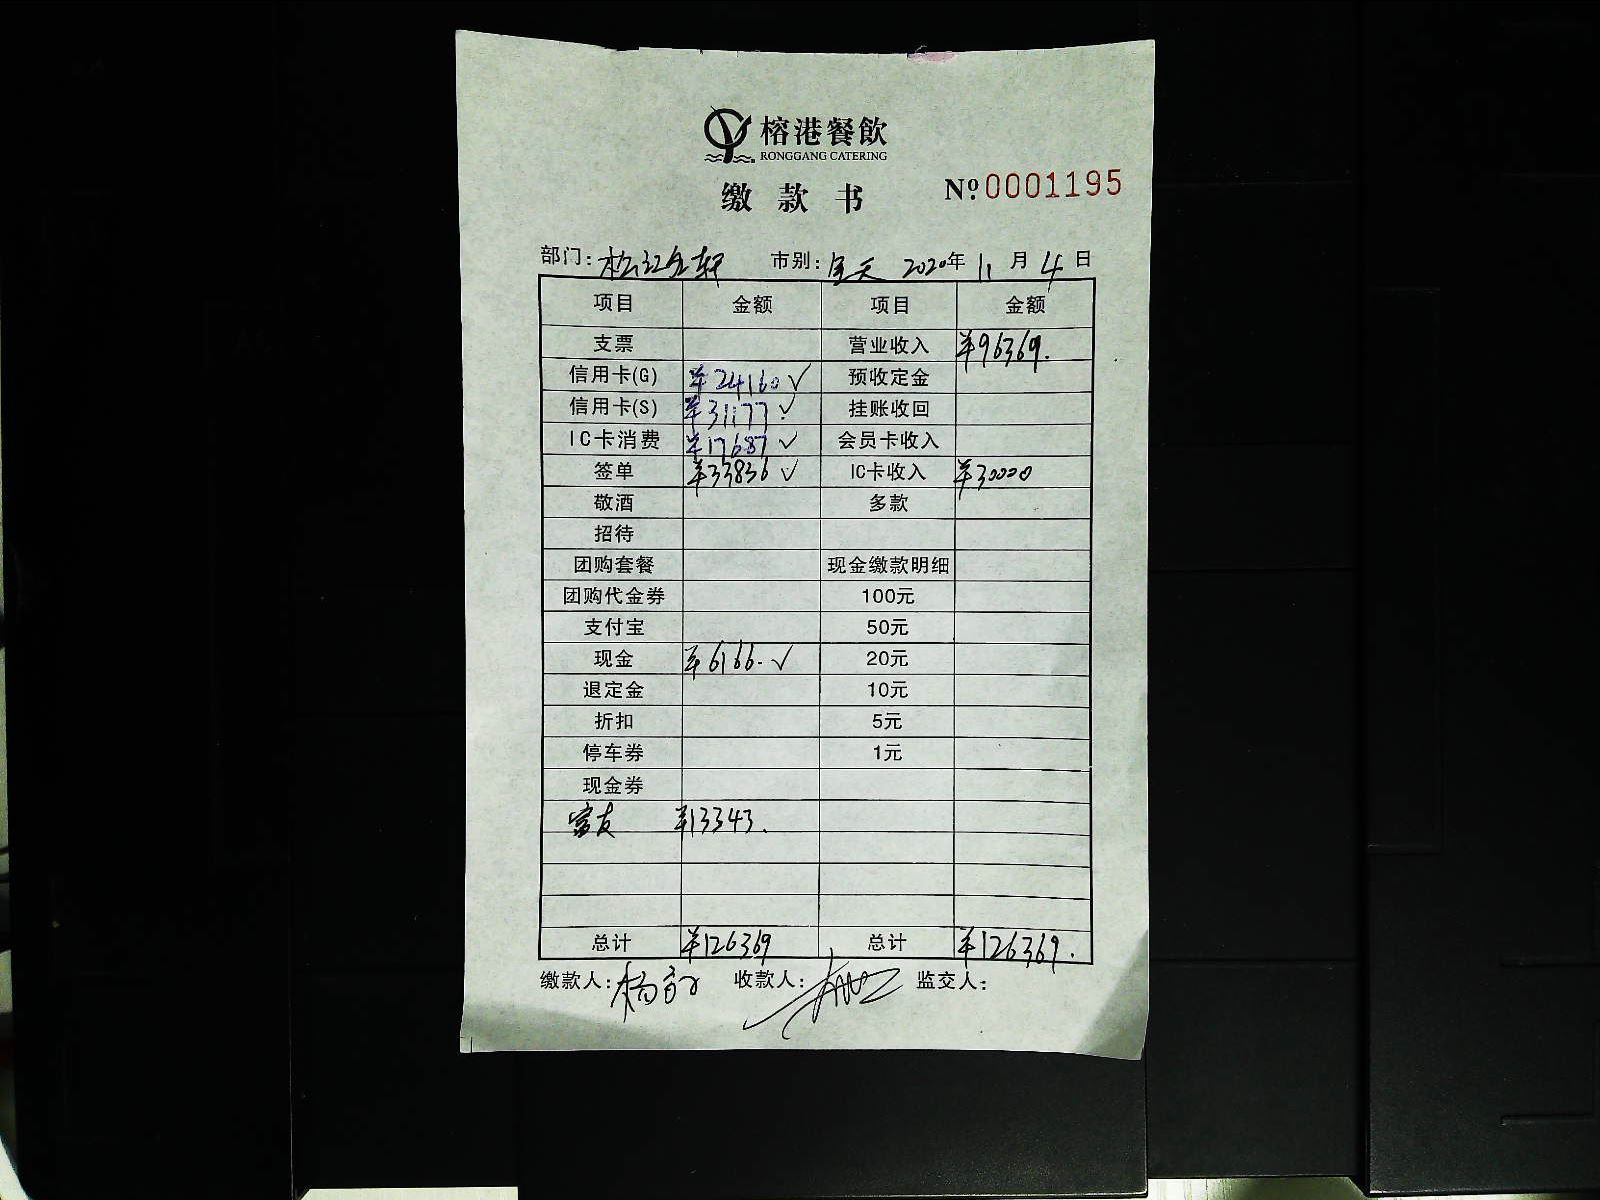 榕港餐飲
RONGGANG CATERING
缴款书 № 0001195
部门: 松江金轩 市别: 全天 2020年 11月 4日
项目 金额 项目 金额
支票 营业收入 ¥96369.
信用卡(G) ¥24160 √ 预收定金
信用卡(S) ¥31177. √ 挂账收回
IC卡消费 ¥17687 √ 会员卡收入
签单 ¥33836 √ IC卡收入 ¥30000
敬酒 多款
招待
团购套餐 现金缴款明细
团购代金券 100元
支付宝 50元
现金 ¥6166. √ 20元
退定金 10元
折扣 5元
停车券 1元
现金券
富友 ¥13343.
总计 ¥126369 总计 ¥126369.
缴款人: 杨 收款人: 监交人: